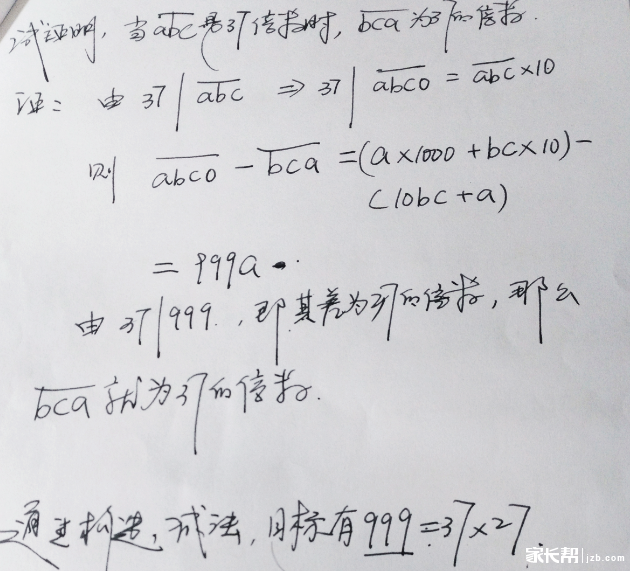 试证明,当abc是37倍数时,bca为37的倍数.
证: 由 37 | abc ⇒ 37 | abc0 = abc×10
则 abc0 - bca = (a×1000 + bc×10) -
(10bc + a)
= 999a
由 37|999. ,即其差为37的倍数,那么
bca 就为37的倍数.
通过构造,减法,目标有 999 = 37×27.
家长帮 jzb.com